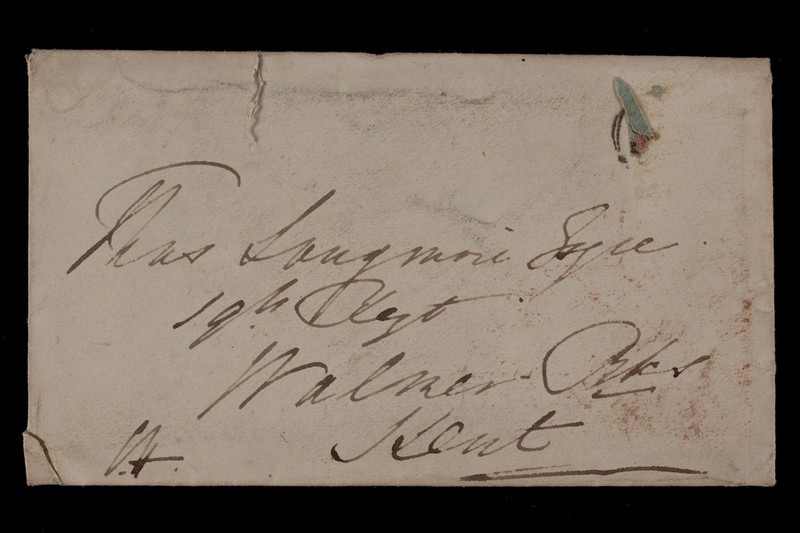 Thos Longmore Esqre
19th Regt
Walmer Bks
Kent